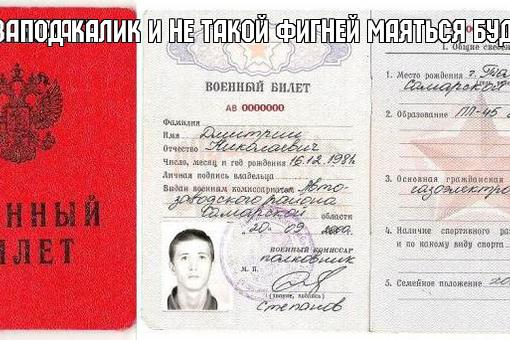 ЗАПОДКАЛИК И НЕ ТАКОЙ ФИГНЕЙ МАЯТЬСЯ БУД
ЕННЫЙ
ИЛЕТ
ВОЕННЫЙ БИЛЕТ
АВ 0000000
Фамилия
Имя Дмитрий
Отчество Николаевич
Число, месяц и год рождения 16.12.1981
Личная подпись владельца
Выдан военным комиссариатом Авто-
заводского района
Самарской области
20 09
ВОЕННЫЙ КОМИССАР
полковник
М. П.
(звание, подпись)
Степанов
I. Общие сведе
1. Место рождения г.
Самарской
2. Образование ПЛ-45
3. Основная гражданская
газоэлектро
4. Наличие спортивного раз
и по какому виду спорта
5. Семейное положение